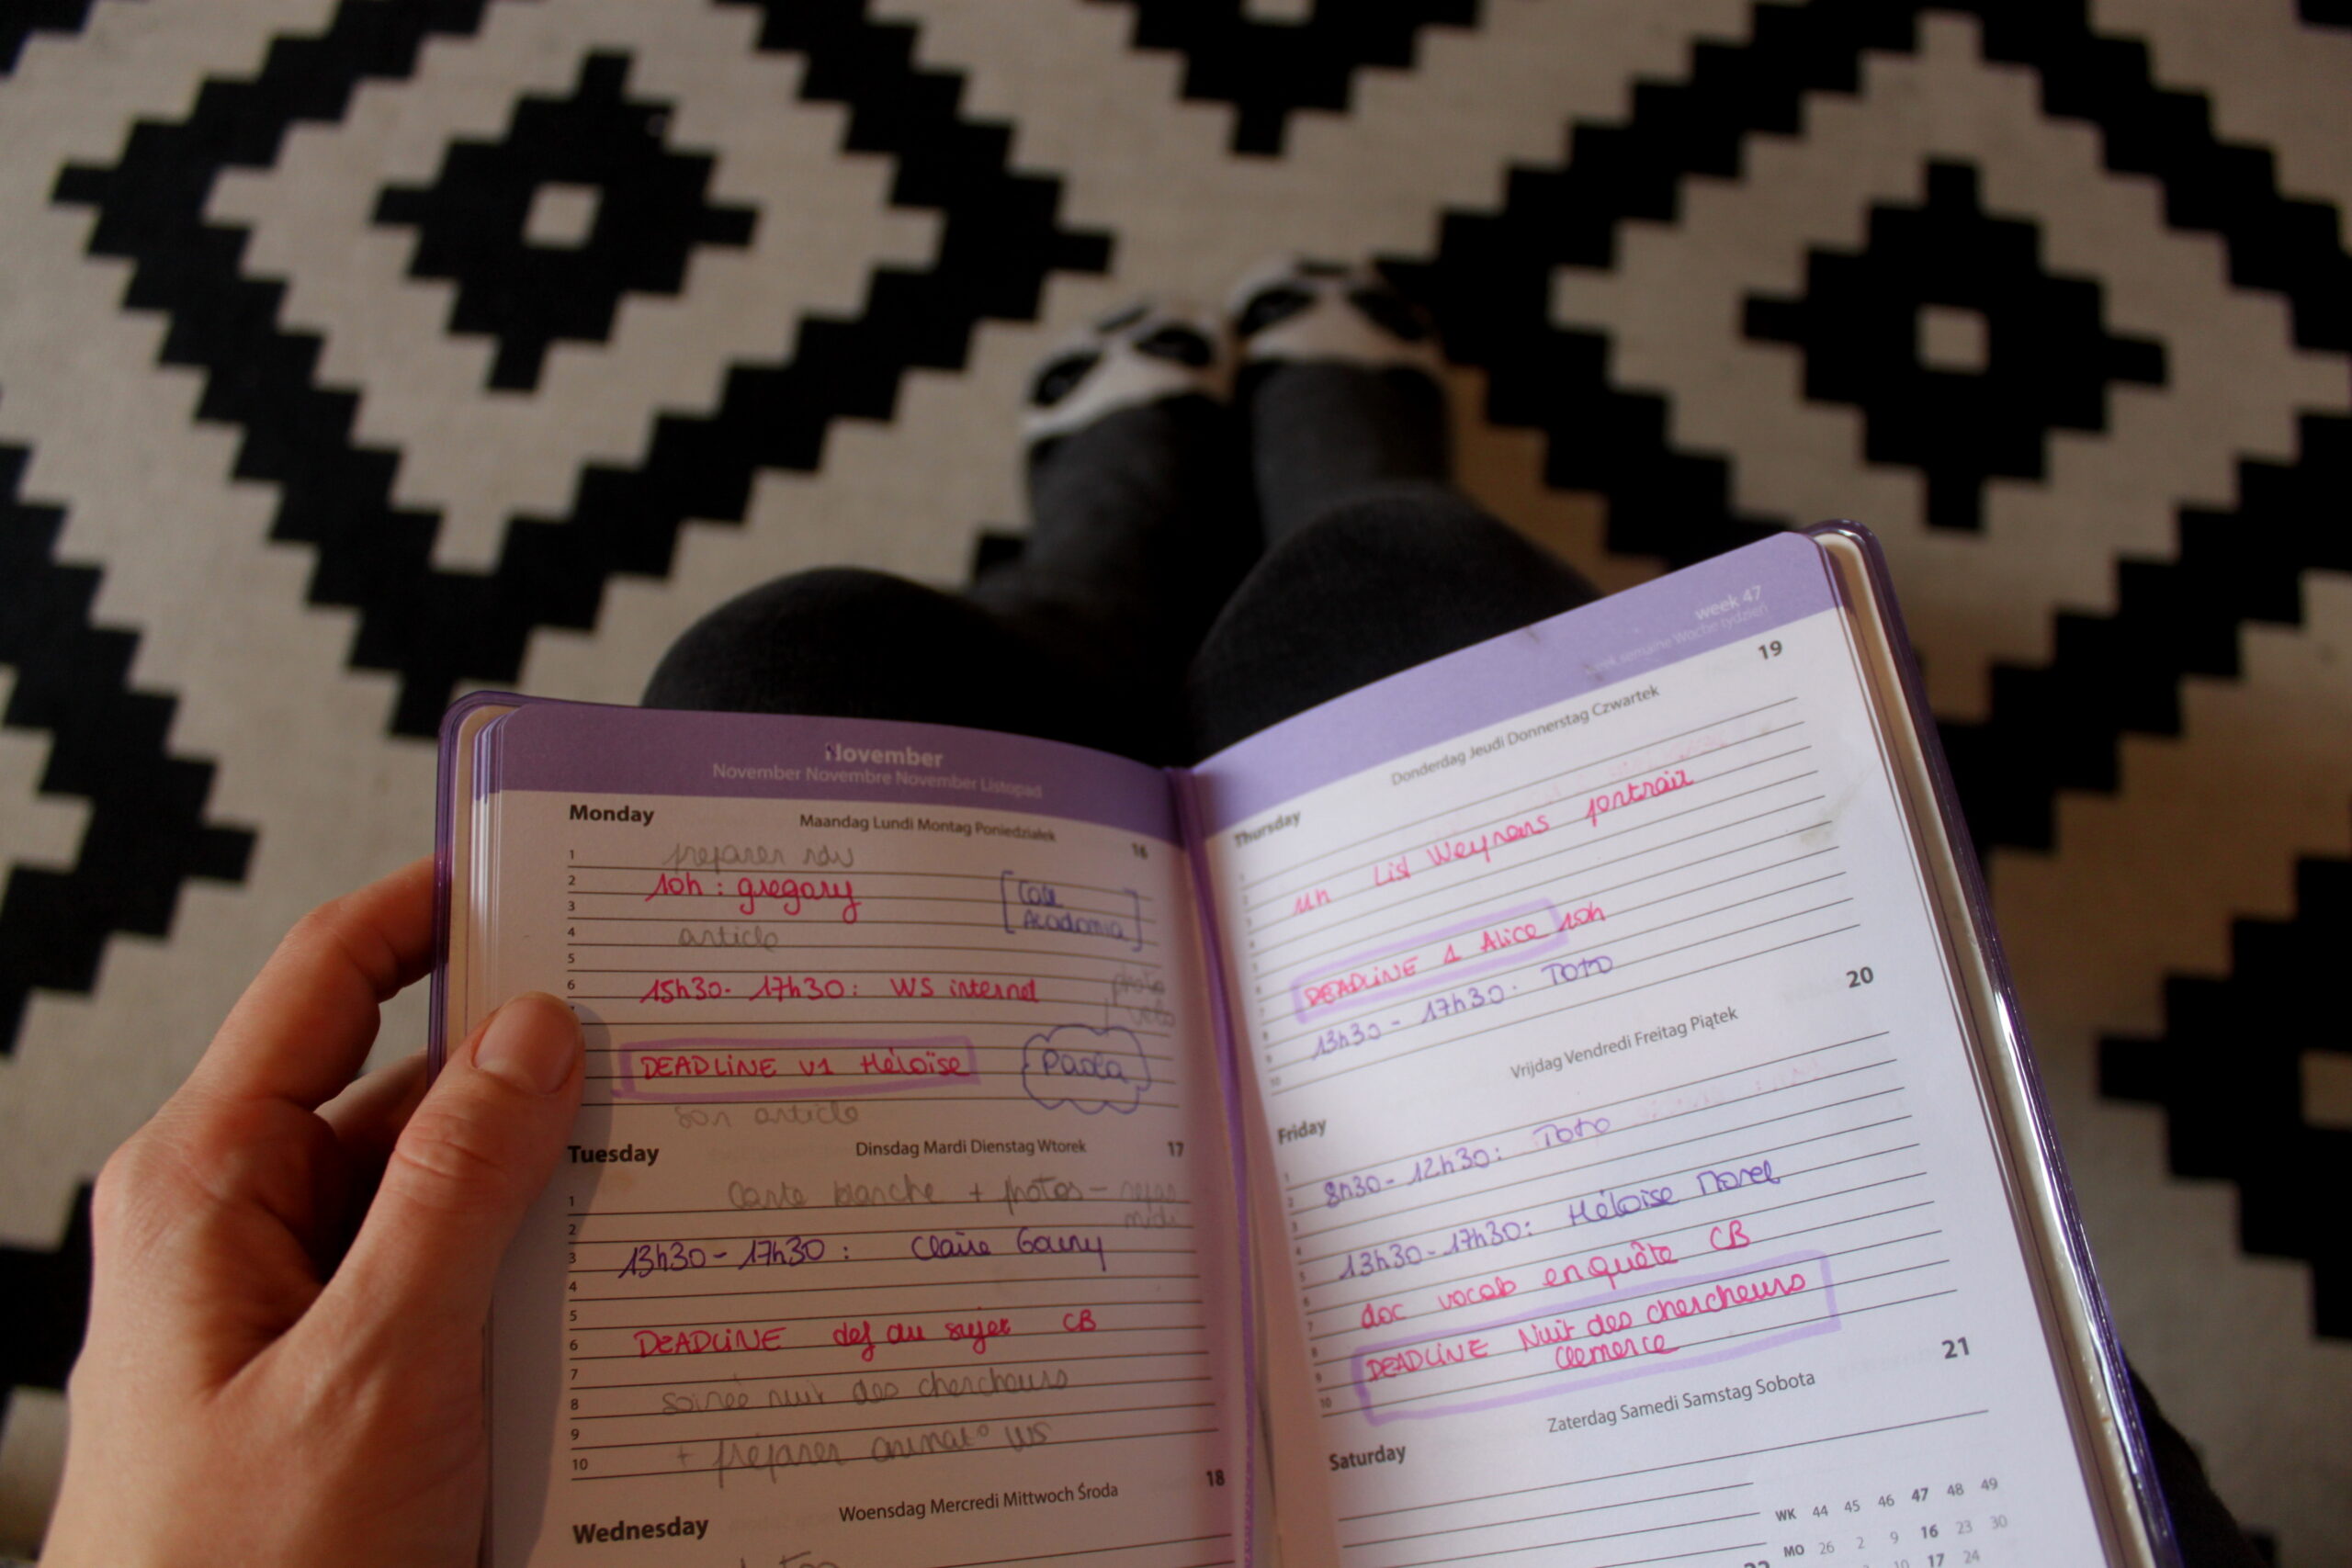 November
November Novembre November Listopad
Monday
Maandag Lundi Montag Poniedziałek
16
1
préparer rdv
2
10h : gregory
[Café
3
Academia]
4
article
5
6
15h30 - 17h30 : WS internet
photo
vélo
DEADLINE V1 Héloïse
Paola
son article
Tuesday
Dinsdag Mardi Dienstag Wtorek
17
1
Carte blanche + photos - repas
midi
2
3
13h30 - 17h30 : Claire
4
5
6
DEADLINE def du sujet CB
7
8
soirée nuit des chercheurs
9
10
+ préparer animat° WS
Wednesday
Woensdag Mercredi Mittwoch Środa
18
week 47
week semaine Woche tydzień
19
Thursday
Donderdag Jeudi Donnerstag Czwartek
11h Weynens portrait
DEADLINE 1 Alice 10h
13h30 - 17h30 : Toto
20
Friday
Vrijdag Vendredi Freitag Piątek
8h30 - 12h30 : Toto
13h30 - 17h30 : Héloïse Morel
doc vocab enquête CB
DEADLINE Nuit des chercheurs
Clémence
21
Saturday
Zaterdag Samedi Samstag Sobota
WK 44 45 46 47 48 49
MO 26 2 9 16 23 30
10 17 24